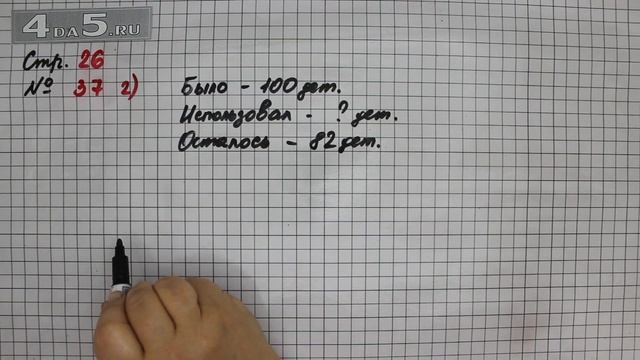 4DA5.RU
Стр. 26
№ 37 2)
Было - 100 дет.
Использовал - ? дет.
Осталось - 82 дет.